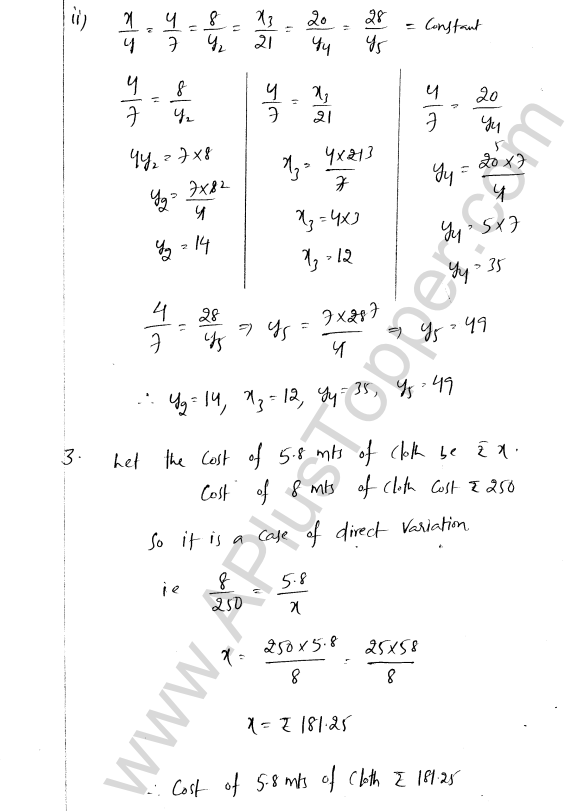 ii) x/y = 4/7 = 8/y₂ = x₃/21 = 20/y₄ = 28/y₅ = Constant
4/7 = 8/y₂
4y₂ = 7×8
y₂ = 7×8²/4
y₂ = 14
4/7 = x₃/21
x₃ = 4×21³/7
x₃ = 4×3
x₃ = 12
4/7 = 20/y₄
y₄ = 20⁵×7/4
y₄ = 5×7
y₄ = 35
4/7 = 28/y₅ ⇒ y₅ = 7×28⁷/4 ⇒ y₅ = 49
∴ y₂ = 14, x₃ = 12, y₄ = 35, y₅ = 49
3. Let the cost of 5.8 mts of cloth be ₹ x.
Cost of 8 mts of cloth cost ₹ 250
So it is a case of direct variation
ie 8/250 = 5.8/x
x = 250×5.8/8 = 25×58/8
x = ₹ 181.25
∴ Cost of 5.8 mts of cloth ₹ 181.25
www.APlusTopper.com